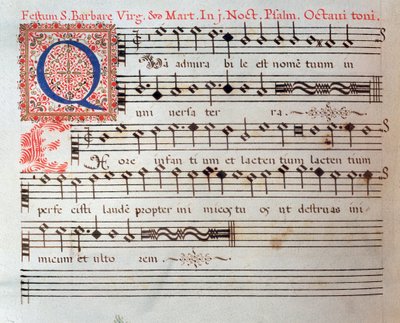 Festum S. Barbare Virg. & Mart. In j. Noct. Psalm. Octaui toni.
Quā admira bi le est nomē tuum in
uni versa ter ra.
Ex ore infan ti um et lacten tium lacten tium
perfe cisti laudē propter ini micos tu os ut destruas ini
micum et ulto rem.